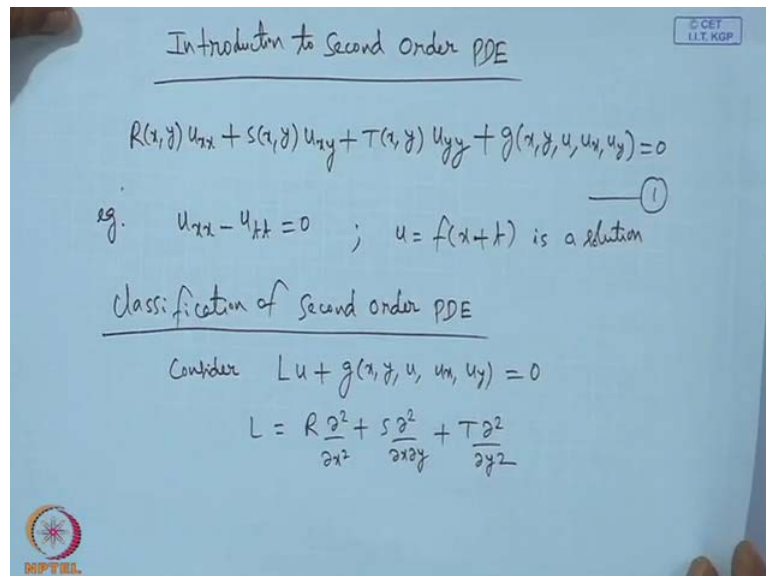 Introduction to Second Order PDE
© CET
I.I.T. KGP
R(x,y) u_xx + S(x,y) u_xy + T(x,y) u_yy + g(x,y,u,u_x,u_y) = 0
—— ①
eg. u_xx - u_tt = 0 ; u = f(x+t) is a solution
Classification of Second order PDE
Consider Lu + g(x, y, u, u_x, u_y) = 0
L = R ∂²/∂x² + S ∂²/∂x∂y + T ∂²/∂y²
NPTEL